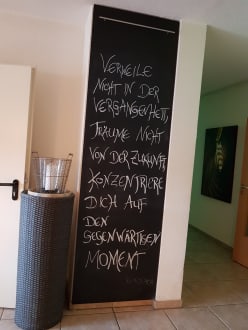 VERWEILE
NICHT IN DER
VERGANGENHEIT,
TRÄUME NICHT
VON DER ZUKUNFT,
KONZENTRIERE
DICH AUF
DEN
GEGENWÄRTIGEN
MOMENT